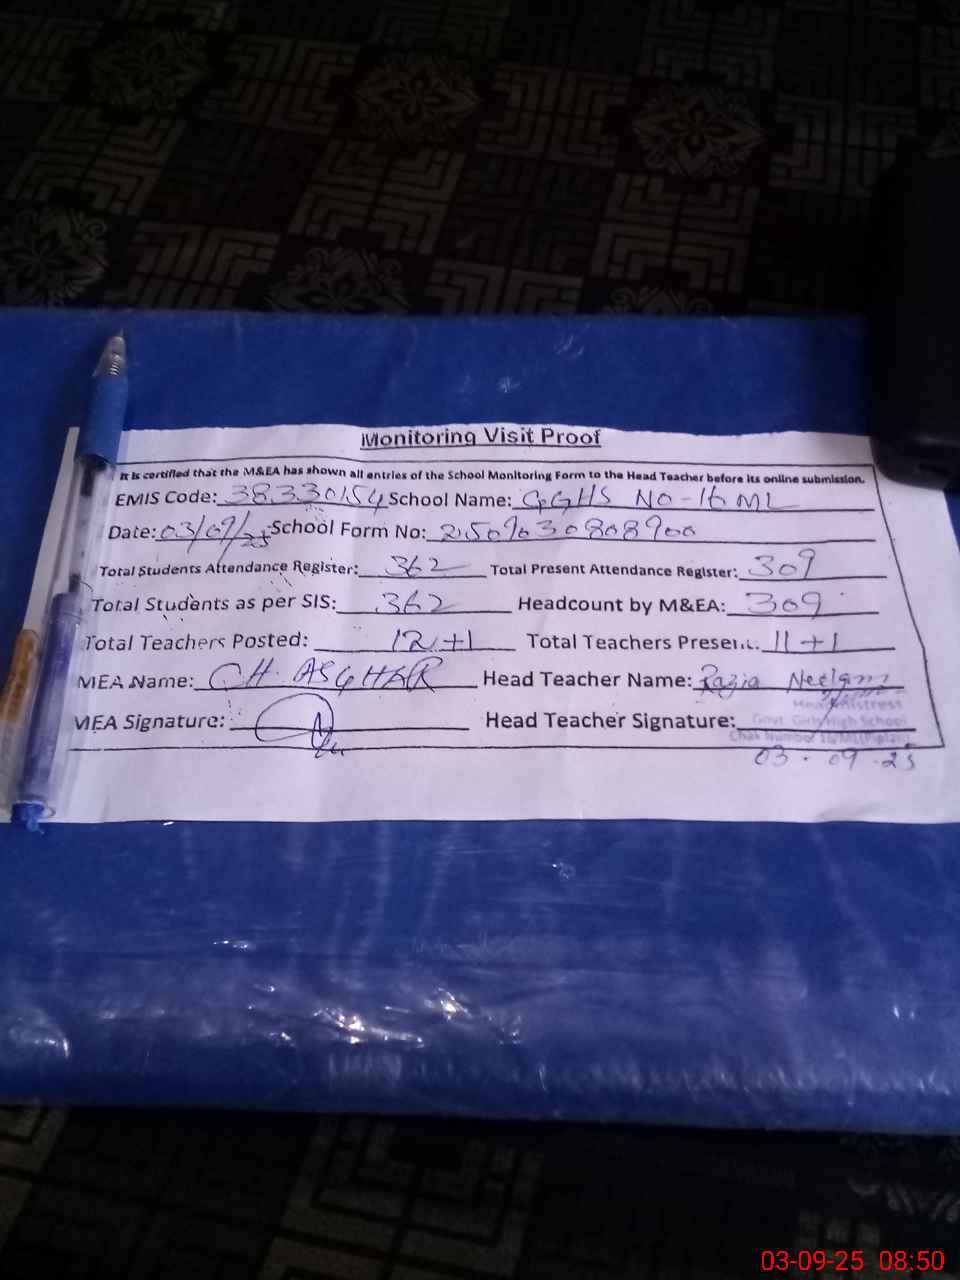 Monitoring Visit Proof
It is certified that the M&EA has shown all entries of the School Monitoring Form to the Head Teacher before its online submission.
EMIS Code: 38330154 School Name: GGHS NO-16 ML
Date: 03/09/25 School Form No: 2509030808900
Total Students Attendance Register: 362 Total Present Attendance Register: 309
Total Students as per SIS: 362 Headcount by M&EA: 309
Total Teachers Posted: 12+1 Total Teachers Present: 11+1
MEA Name: CH. ASGHAR Head Teacher Name: Razia Neelam
MEA Signature: Head Teacher Signature:
Headmistress
Govt. Girls High School
Chak Number 16 ML (Piplan)
03-09-25
03-09-25 08:50